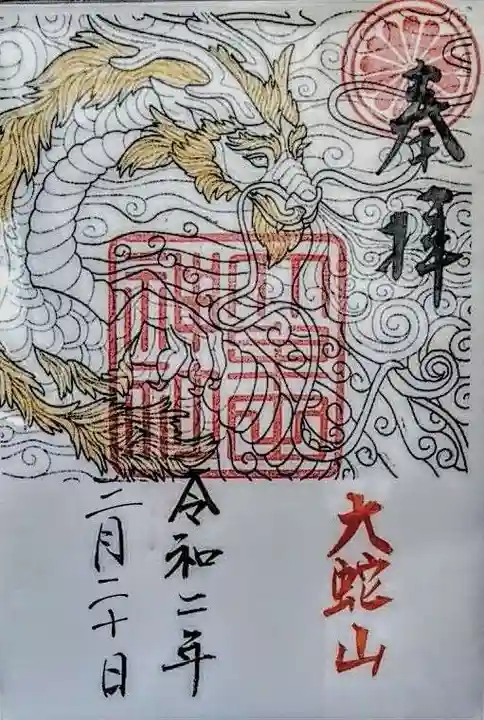 奉拝
大蛇山
令和二年
二月二十日